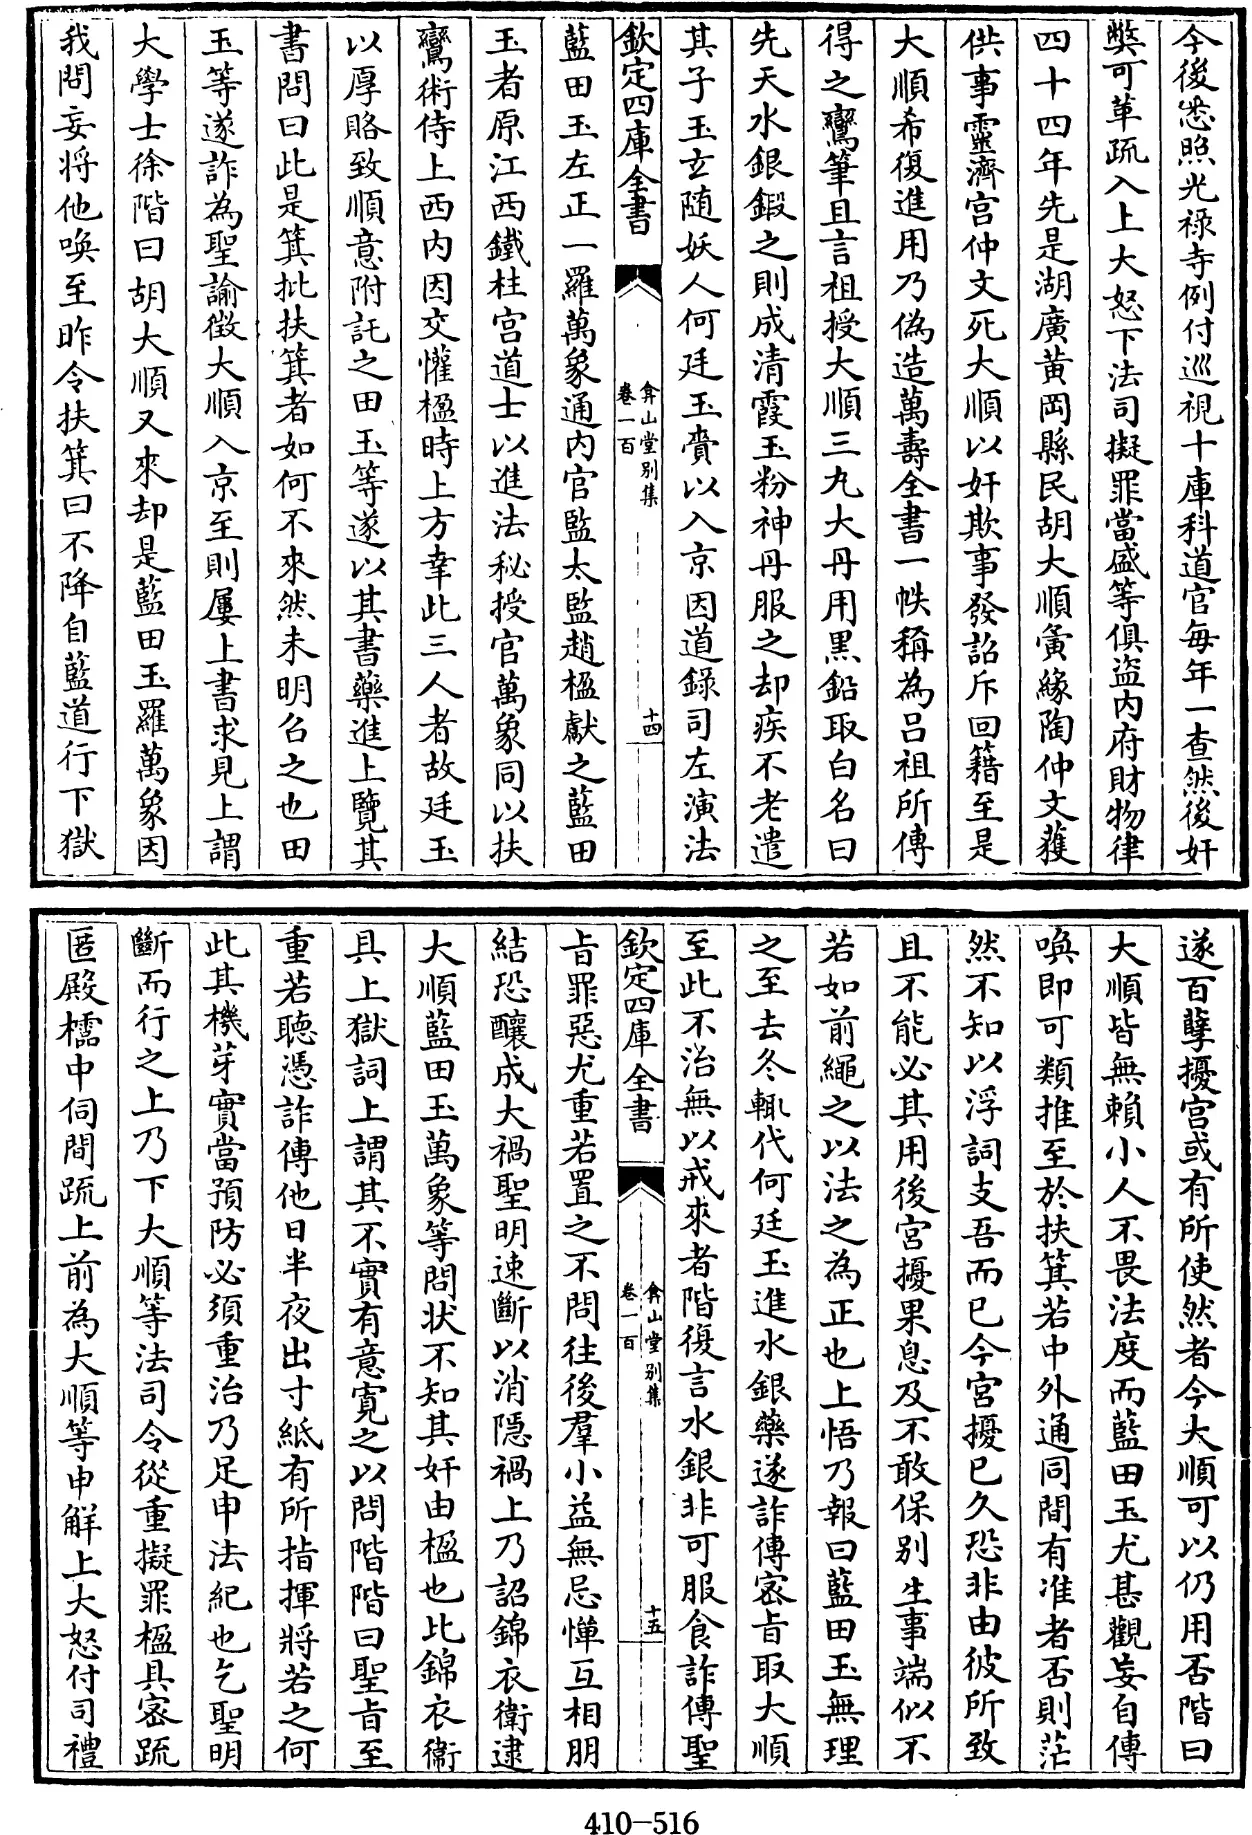 今後悉照光祿寺例付巡視十庫科道官每年一查然後奸
弊可革疏入上大怒下法司擬罪當盛等俱盜内府財物律
四十四年先是湖廣黄岡縣民胡大順夤緣陶仲文獲
供事靈濟宫仲文死大順以奸欺事發詔斥回籍至是
大順希復進用乃偽造萬壽全書一帙稱為呂祖所傳
得之鸞筆且言祖授大順三丸大丹用黑鉛取白名曰
先天水銀鍜之則成清霞玉粉神丹服之却疾不老遣
其子玉玄随妖人何廷玉賫以入京因道錄司左演法
欽定四庫全書
弇山堂别集
卷一百
十四
藍田玉左正一羅萬象通内官監太監趙楹獻之藍田
玉者原江西鐵柱宫道士以進法秘授官萬象同以扶
鸞術侍上西内因交懽楹時上方幸此三人者故廷玉
以厚賂致順意附託之田玉等遂以其書藥進上覽其
書問曰此是箕批扶箕者如何不來然未明召之也田
玉等遂詐為聖諭徵大順入京至則屢上書求見上謂
大學士徐階曰胡大順又來却是藍田玉羅萬象因
我問妄將他喚至昨令扶箕曰不降自藍道行下獄
遂百孽擾宫或有所使然者今大順可以仍用否階曰
大順皆無賴小人不畏法度而藍田玉尤甚觀妄自傳
喚即可類推至於扶箕若中外通同間有准者否則茫
然不知以浮詞支吾而已今宫擾已久恐非由彼所致
且不能必其用後宫擾果息及不敢保别生事端似不
若如前繩之以法之為正也上悟乃報曰藍田玉無理
之至去冬輒代何廷玉進水銀藥遂詐傳密旨取大順
至此不治無以戒來者階復言水銀非可服食詐傳聖
欽定四庫全書
弇山堂别集
卷一百
十五
旨罪惡尤重若置之不問往後羣小益無忌憚互相朋
結恐釀成大禍聖明速斷以消隱禍上乃詔錦衣衛逮
大順藍田玉萬象等問状不知其奸由楹也比錦衣衛
具上獄詞上謂其不實有意寛之以問階階曰聖旨至
重若聽憑詐傳他日半夜出寸紙有所指揮將若之何
此其機芽實當預防必須重治乃足申法紀也乞聖明
斷而行之上乃下大順等法司令從重擬罪楹具密疏
匿殿檽中伺間疏上前為大順等申解上大怒付司禮
410-516